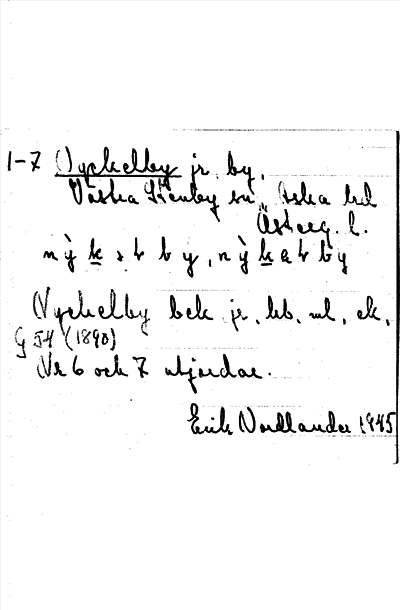 1-7 Nyckelby jr, by,
Västra Stenby sn, Aska hd
Österg. l.
Nyckelby bck jr, kb, ml, ek,
G 54 (1890)
Nr 6 och 7 utjordar.
Erik Nordlander 1945